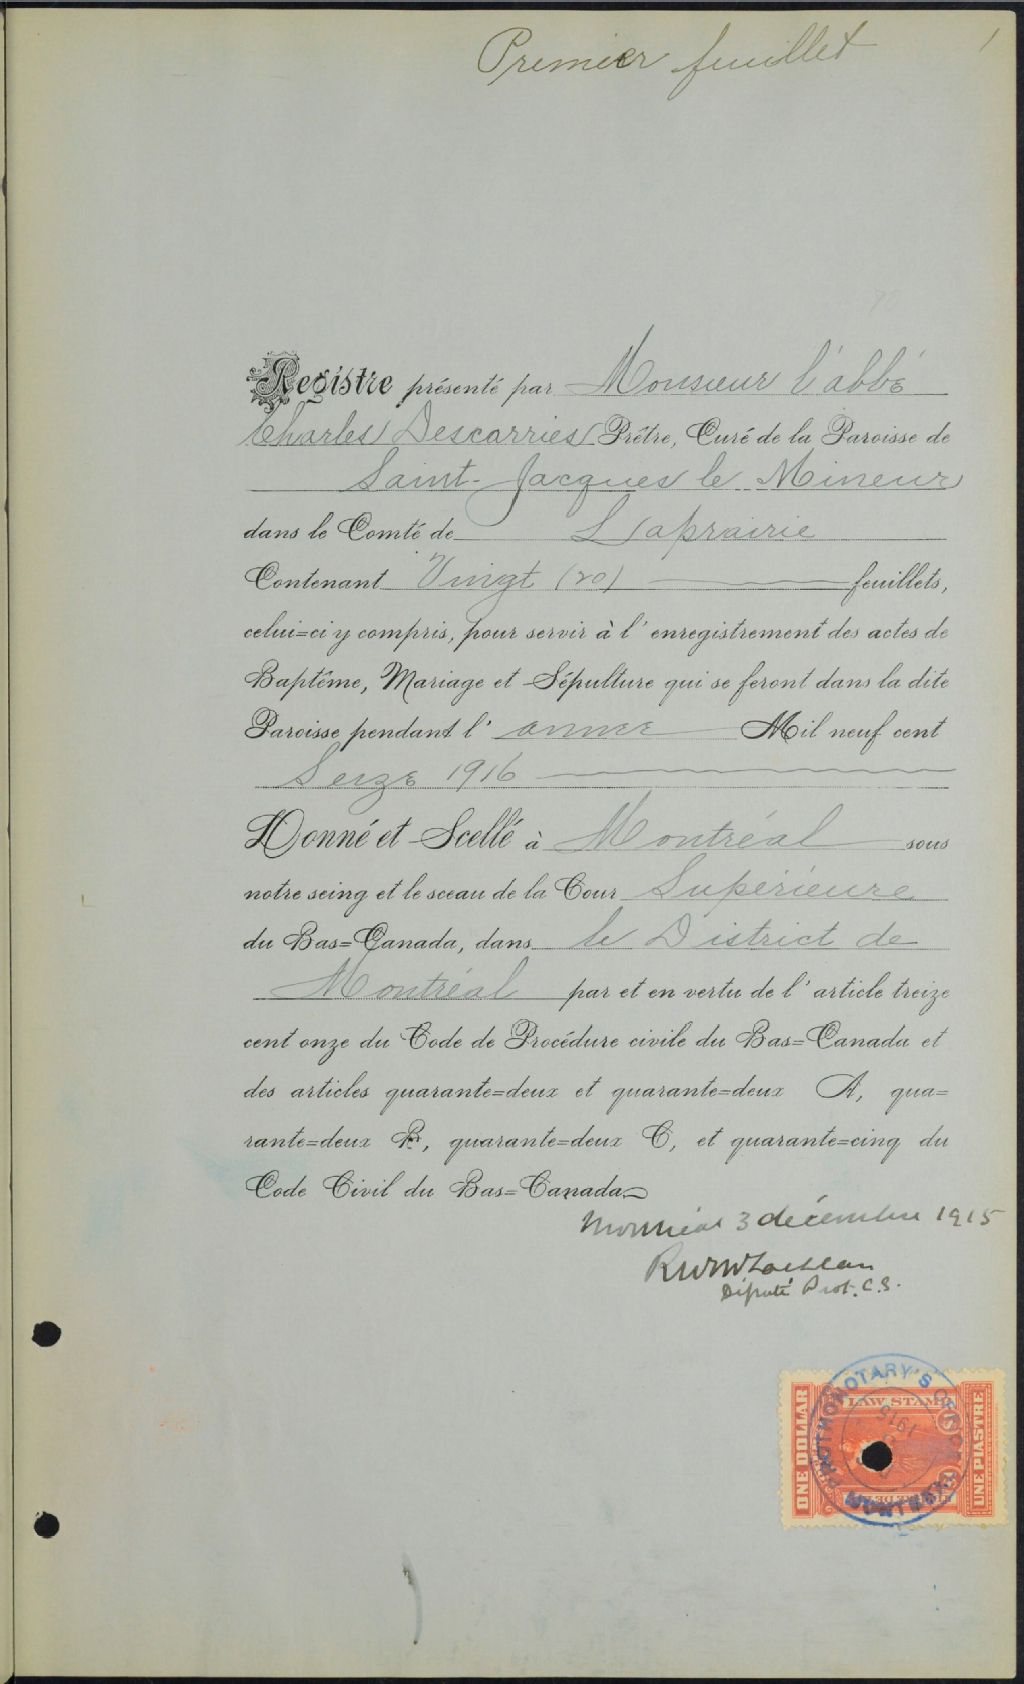 Premier feuillet
1
Registre présenté par Monsieur l'abbé
Charles Descarries Prêtre, Curé de la Paroisse de
Saint-Jacques le Mineur
dans le Comté de Laprairie
Contenant Vingt (20) feuillets,
celui=ci y compris, pour servir à l'enregistrement des actes de
Baptême, Mariage et Sépulture qui se feront dans la dite
Paroisse pendant l'année Mil neuf cent
Seize 1916
Donné et Scellé à Montréal sous
notre seing et le sceau de la Cour Supérieure
du Bas=Canada, dans le District de
Montréal par et en vertu de l'article treize
cent onze du Code de Procédure civile du Bas=Canada et
des articles quarante=deux et quarante=deux A, qua=
rante=deux B, quarante=deux C, et quarante=cinq du
Code Civil du Bas=Canada
Montréal 3 décembre 1915
Député Prot. C.S.
PROTHONOTARY'S OFFICE
MONTREAL
1915
LAW STAMP
ONE DOLLAR
UNE PIASTRE